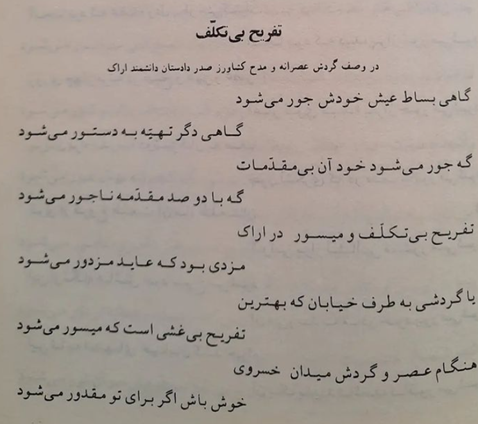 تفریح بی‌تکلّف
در وصف گردش عصرانه و مدح کشاورز صدر دادستان دانشمند اراک
گاهی بساط عیش خودش جور می‌شود
گاهی دگر تهیّه به دستور می‌شود
گه جور می‌شود خود آن بی‌مقدّمات
گه با دو صد مقدّمه ناجور می‌شود
تفریح بی‌تکلّف و میسور در اراک
مزدی بود که عاید مزدور می‌شود
یا گردشی به طرف خیابان که بهترین
تفریح بی‌غشی است که میسور می‌شود
هنگام عصر و گردش میدان خسروی
خوش باش اگر برای تو مقدور می‌شود